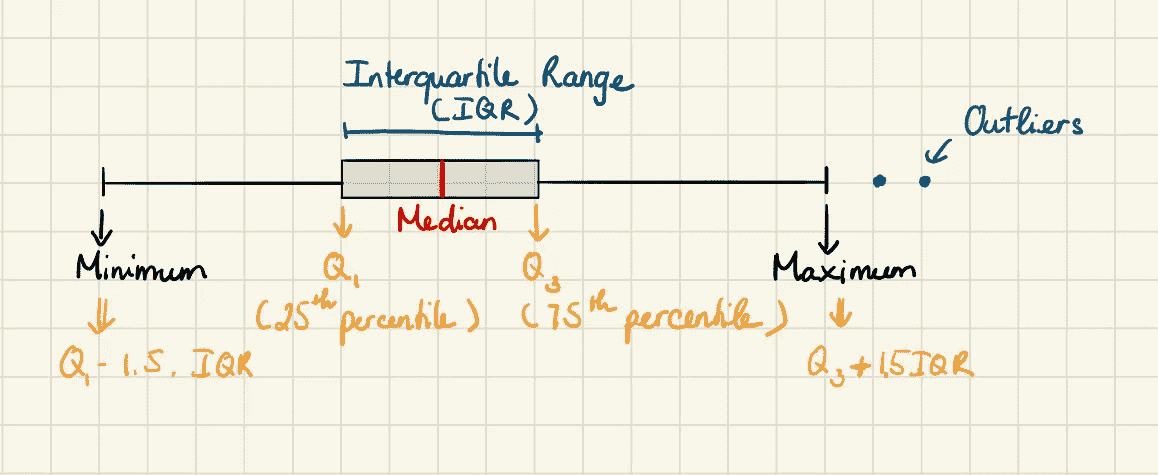 Interquartile Range
(IQR)
Outliers
Median
Minimum
Q₁
Q₃
Maximum
(25th percentile)
(75th percentile)
Q₁ - 1.5. IQR
Q₃ + 1,5 IQR